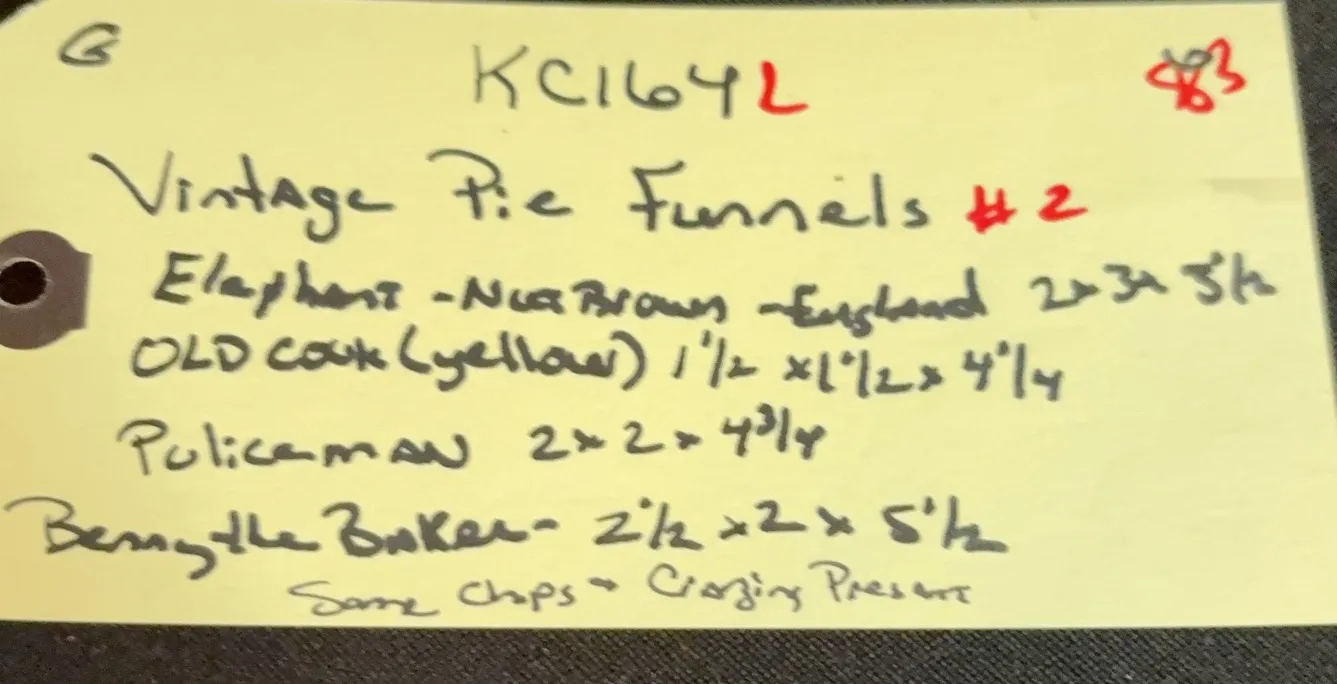 G KC164L 83
Vintage Pie Funnels #2
Elephant - Nut Brown - England 2x3x 3½
OLD COOK (yellow) 1 1/2 x 1 1/2 x 4 1/4
Policeman 2 x 2 x 4 3/4
Benny the Baker - 2 1/2 x 2 x 5 1/2
Some Chips + Crazing Present